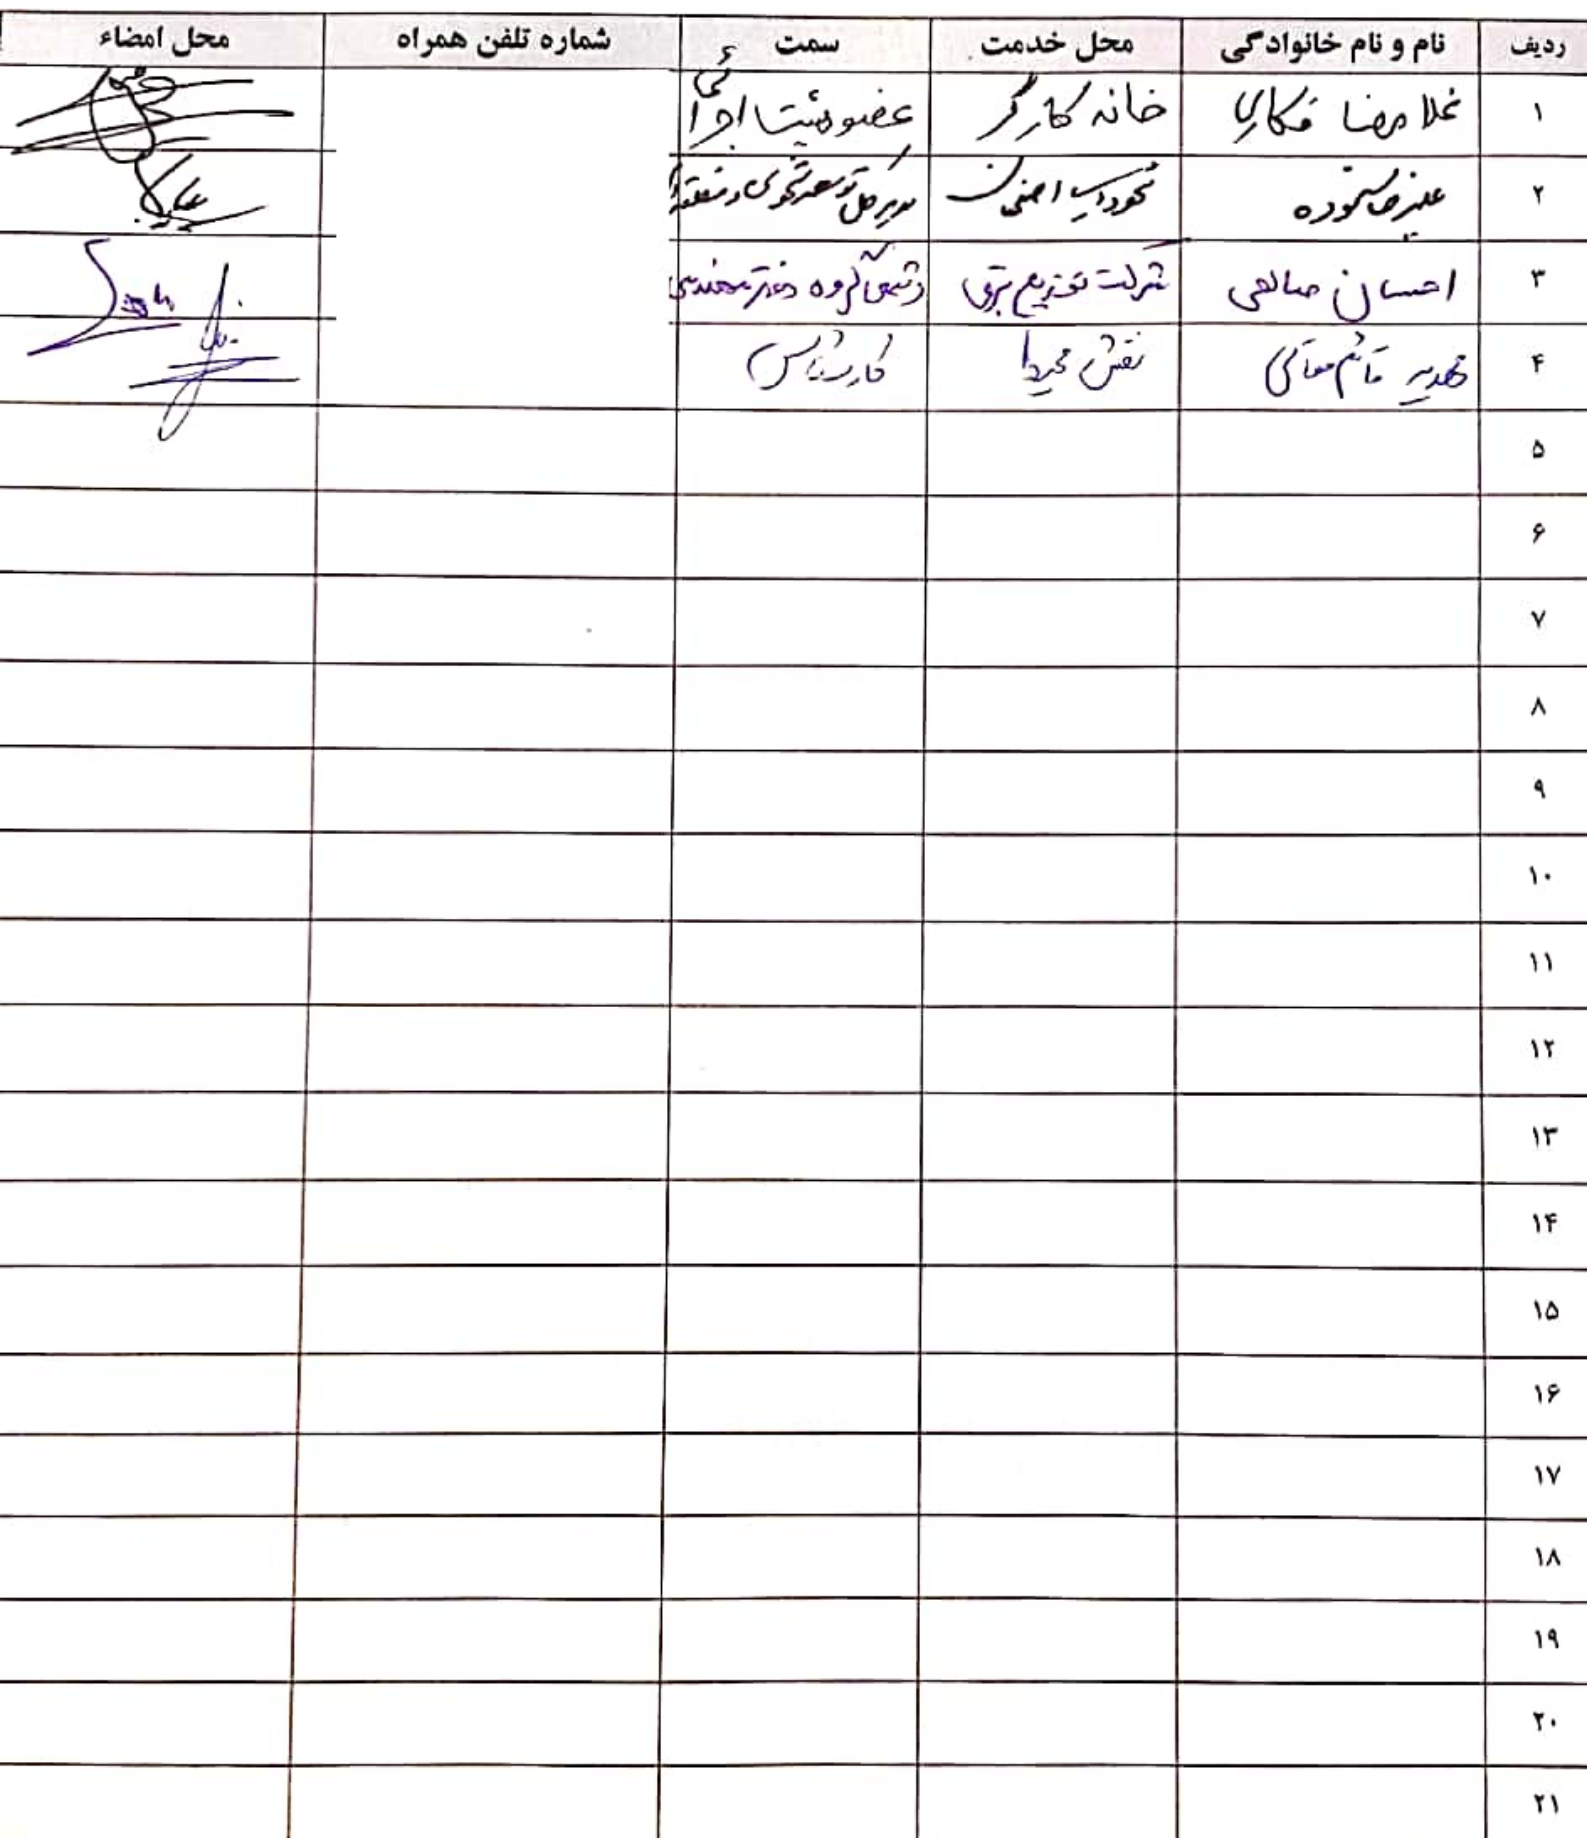 ردیف نام و نام خانوادگی محل خدمت سمت شماره تلفن همراه محل امضاء
۱ غلامرضا فکاری خانه کارگر عضو هیئت اجرائی
۲ علیرضا ستوده اصفهان مدیر کل توسعه
۳ احسان صالحی شرکت توزیع برق گروه دفتر مهندسی
۴ مهدیه قائم مقامی نقش کارشناس
۵
۶
۷
۸
۹
۱۰
۱۱
۱۲
۱۳
۱۴
۱۵
۱۶
۱۷
۱۸
۱۹
۲۰
۲۱